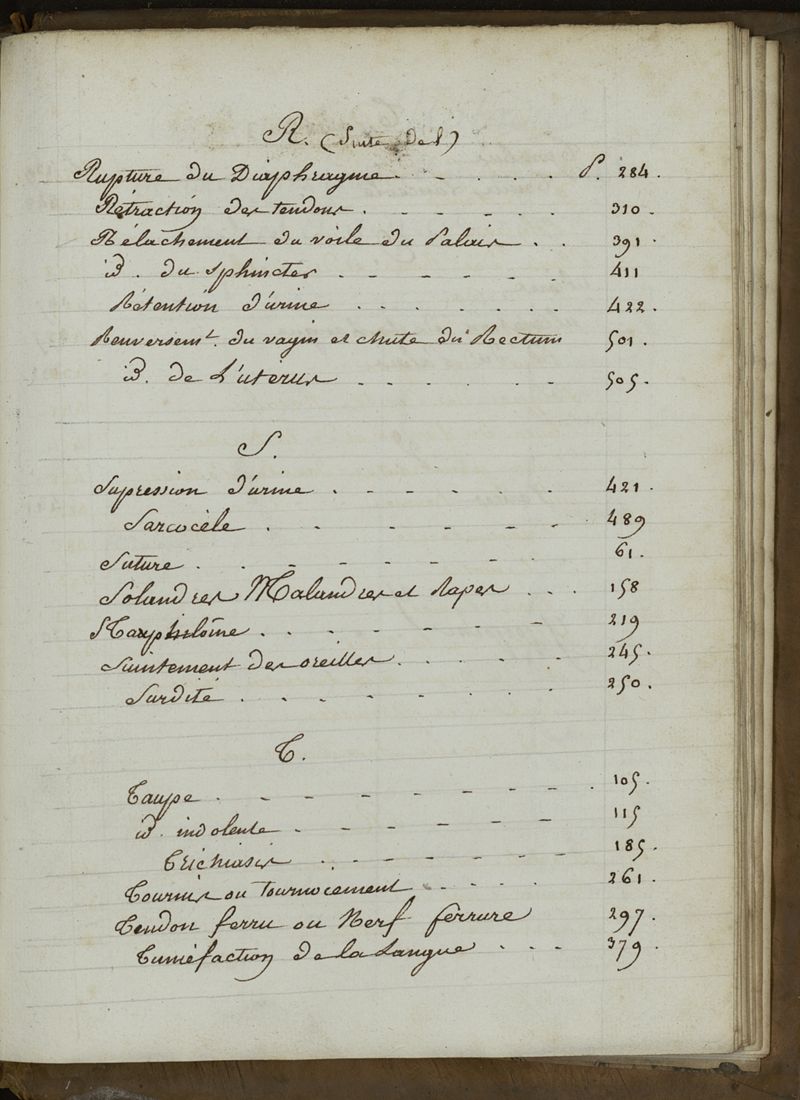 R. (Suite de l')
Rupture du Diaphragme . - . . . . P. 284.
Rétraction des tendons . . - - - - 310.
Rélachement du voile du Palais . . 391.
id. du Sphincter . - - - - - 411
Rétention d'urine . . . . . . . 422.
Renversemt. du vagin et chute du Rectum 501.
id. de L'uterus . . . . . - 505.
S.
Supression d'urine . - - - - - 421.
Sarcocèle . - . - . - - 489
Suture . . . - - - - - - 61.
Solandres Malandres et Rapes . . . 158
Staphilôme . . - . - - - - - 219
Suintement des oreilles . . - . - 245.
Surdité . . - . - . . . 250.
T.
Taupe . - - - - - - - - . 105.
id. indolente . - - - - - - 115
Trichiasis . - - - - - - 185.
Tournis ou tournocement . - . . . 261.
Tendon ferru ou Nerf ferrure 297.
Tuméfaction de la Langue . . - - 379.